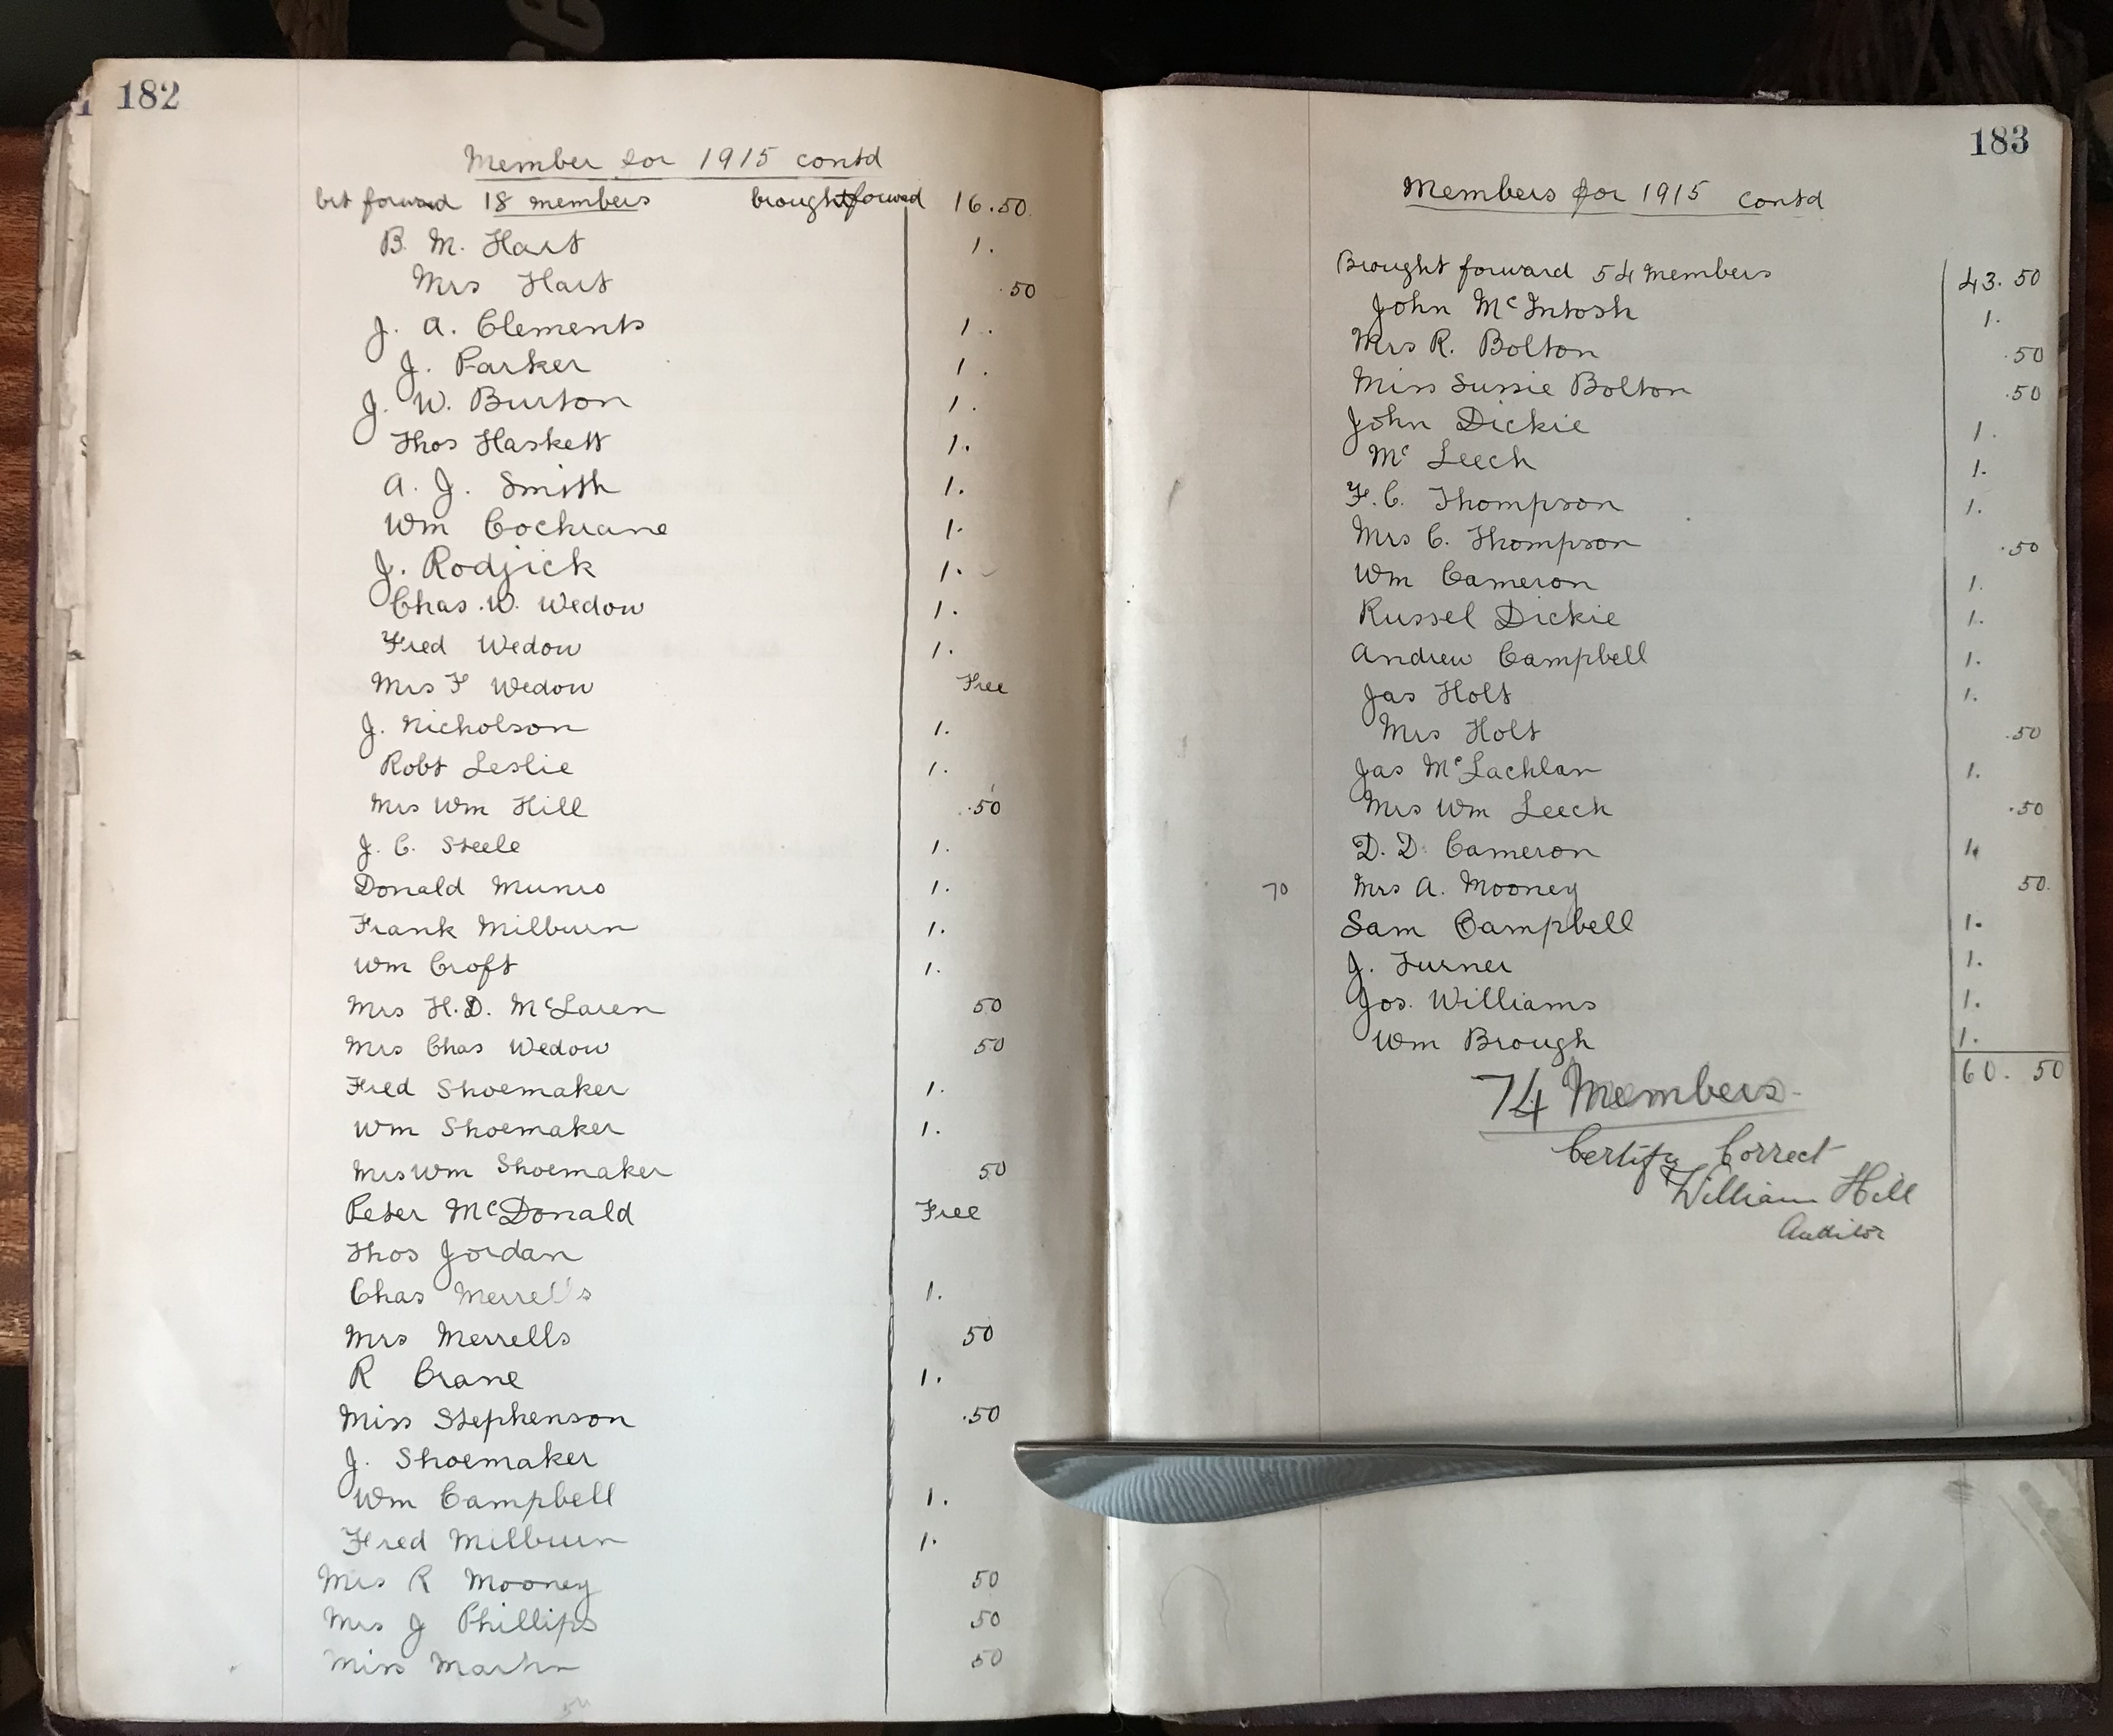 182
Member for 1915 contd
brt forward 18 members brought forward 16.50
B. M. Hart 1.
Mrs Hart .50
J. A. Clements 1.
J. Parker 1.
J. W. Burton 1.
Thos Haskett 1.
A. J. Smith 1.
Wm Cochrane 1.
J. Rodjick 1.
Chas. W. Wedow 1.
Fred Wedow 1.
Mrs F Wedow Free
J. Nicholson 1.
Robt Leslie 1.
Mrs Wm Hill .50
J. C. Steele 1.
Donald Munro 1.
Frank Milburn 1.
Wm Croft 1.
Mrs H.D. McLaren 50
Mrs Chas Wedow 50
Fred Shoemaker 1.
Wm Shoemaker 1.
Mrs Wm Shoemaker 50
Peter McDonald Free
Thos Jordan
Chas Merrells 1.
Mrs Merrells 50
R Crane 1.
Miss Stephenson .50
J. Shoemaker
Wm Campbell 1.
Fred Milburn 1.
Mrs R Mooney 50
Mrs J Phillips 50
Miss Martin 50
54
183
Members for 1915 contd
Brought forward 54 members 43.50
John McIntosh 1.
Mrs R. Bolton .50
Miss Sussie Bolton .50
John Dickie 1.
Mc Leech 1.
F. C. Thompson 1.
Mrs C. Thompson .50
Wm Cameron 1.
Russel Dickie 1.
Andrew Campbell 1.
Jas Holt 1.
Mrs Holt .50
Jas McLachlan 1.
Mrs Wm Leech .50
D. D. Cameron 1.
70 Mrs A. Mooney 50.
Sam Campbell 1.
J. Turner 1.
Jos. Williams 1.
Wm Brough 1.
60. 50
74 Members.
Certify Correct
William Hill
Auditor